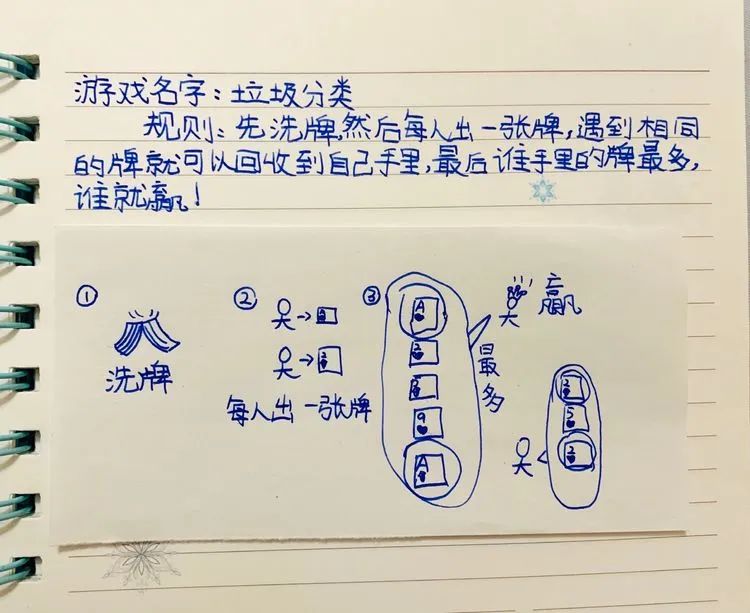 游戏名字：垃圾分类
规则：先洗牌，然后每人出一张牌，遇到相同
的牌就可以回收到自己手里，最后谁手里的牌最多，
谁就赢！
①
洗牌
②
每人出一张牌
③
A
9
A
最多
赢
2
5
2